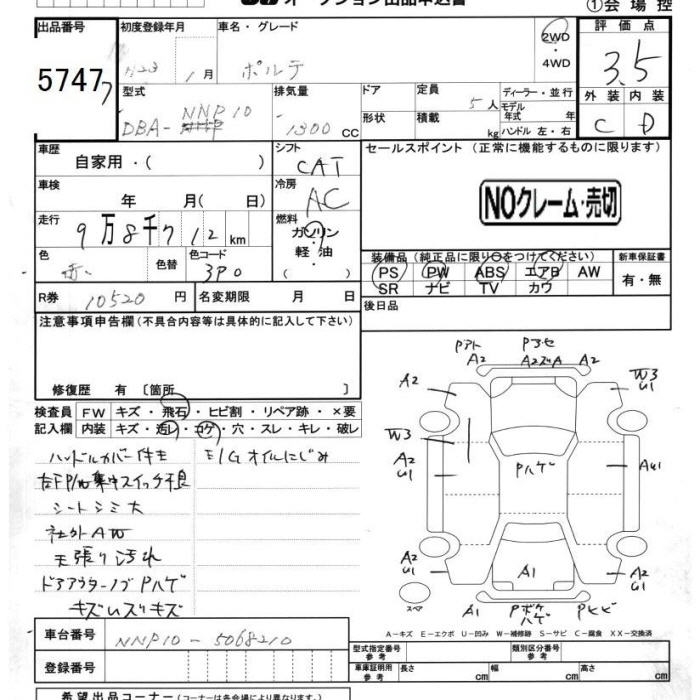 オークション出品申込書
①会場控
出品番号 初度登録年月 車名・グレード 2WD ・ 4WD 評価点
57477 H23 1月 ポルテ 3.5
型式 排気量 ドア 定員 ディーラー・並行 外装 内装
DBA- NNP10 1300 CC 5人 モデル年式 年 C D
形状 積載 kg ハンドル 左・右
車歴 自家用・( ) シフト CAT セールスポイント (正常に機能するものに限ります)
車検 年 月( 日) 冷房 AC NOクレーム・売切
走行 9万8千712km 燃料 ガソリン・軽油・( )
色 赤 色替 色コード 3P0
装備品 (純正品に限り○をつけてください) 新車保証書
PS PW ABS エアB AW 有・無
SR ナビ TV カワ
R券 10520円 名変期限 月 日 後日品
注意事項申告欄 (不具合内容等は具体的に記入して下さい)
修復歴 有 〔箇所
検査員記入欄 FW キズ・飛石・ヒビ割・リペア跡・×要
内装 キズ・汚レ・コゲ・穴・スレ・キレ・破レ
ハンドルカバー付キ E/Gオイルにじみ
右FP/W集中スイッチ不良
シートシミ大
社外AW
天張り汚れ
ドアアウターノブPハゲ
キズ
Pアト Pヨセ
A2 A2 A2
A2 W3 U1
W3
A2 U1 Pハゲ AU1
A2 U1 A1 A2 U1
スペア A1 Pボケ ハゲ Pヒビ
A－キズ E－エクボ U－凹み W－補修跡 S－サビ C－腐食 XX－交換済
車台番号 NNP10-5068210
型式指定番号 参考 類別区分番号 参考
登録番号 車庫証明用 参考 長さ cm 幅 cm 高さ cm
希望出品コーナー (コーナーは各会場により異なります。)